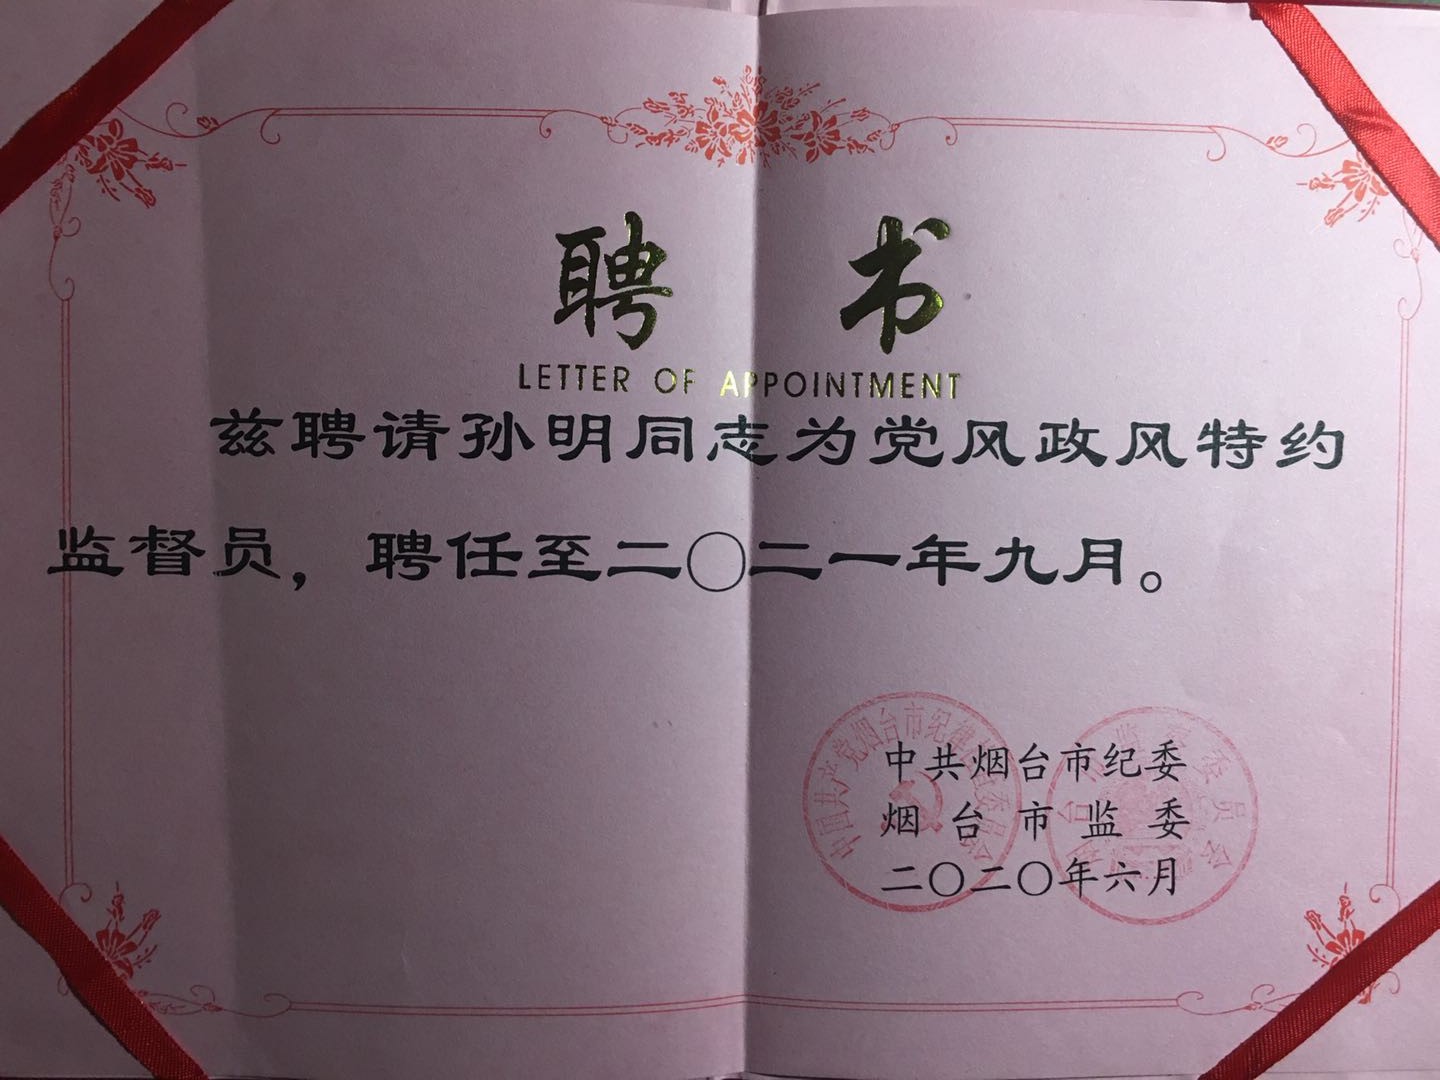 聘 书
LETTER OF APPOINTMENT
兹聘请孙明同志为党风政风特约
监督员，聘任至二〇二一年九月。
中共烟台市纪委
烟台市监委
二〇二〇年六月
中国共产党烟台市纪律